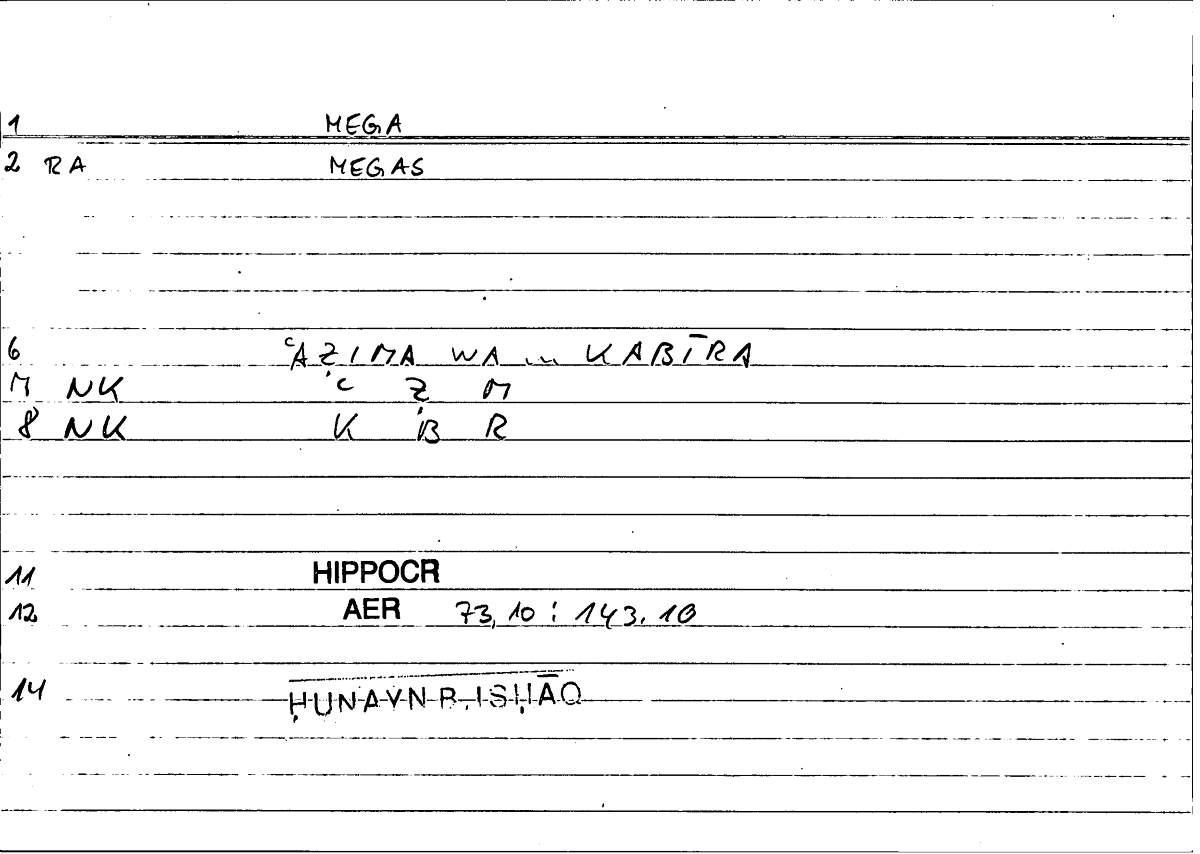 1 MEGA
2 RA MEGAS
6 ʿAẒIMA WA ... KABĪRA
7 NK ʿ Ẓ M
8 NK K B R
11 HIPPOCR
12 AER 73,10 : 143.10
14 ḤUNAYN B. ISḤĀQ